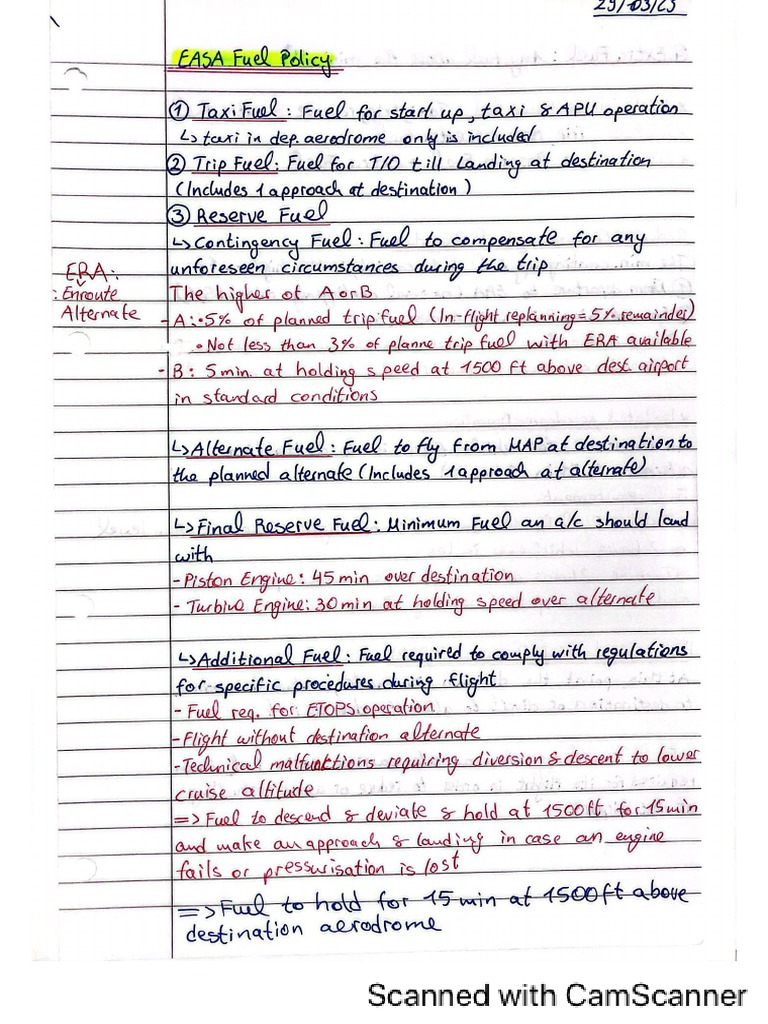 29/03/23
EASA Fuel Policy
① Taxi Fuel: Fuel for start up, taxi & APU operation
↳ taxi in dep. aerodrome only is included
② Trip Fuel: Fuel for T/O till Landing at destination
(Includes 1 approach at destination)
③ Reserve Fuel
↳ Contingency Fuel: Fuel to compensate for any
unforeseen circumstances during the trip
ERA:
: Enroute
Alternate
The higher of A or B
- A: • 5% of planned trip fuel (In-flight replanning = 5% remainder)
• Not less than 3% of planne trip fuel with ERA available
- B: 5 min. at holding speed at 1500 ft above dest. airport
in standard conditions
↳ Alternate Fuel: Fuel to fly from MAP at destination to
the planned alternate (Includes 1 approach at alternate)
↳ Final Reserve Fuel: Minimum Fuel an a/c should land
with
- Piston Engine: 45 min over destination
- Turbine Engine: 30 min at holding speed over alternate
↳ Additional Fuel: Fuel required to comply with regulations
for specific procedures during flight
- Fuel req. for ETOPS operation
- Flight without destination alternate
- Technical malfunktions requiring diversion & descent to lower
cruise altitude
=> Fuel to descend & deviate & hold at 1500ft for 15min
and make an approach & landing in case an engine
fails or pressurisation is lost
=> Fuel to hold for 15 min at 1500ft above
destination aerodrome
Scanned with CamScanner